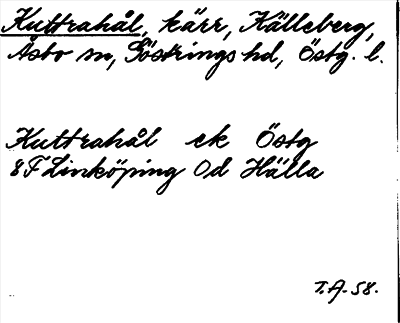 Kuttrahål, kärr, Källeberg,
Åsbo sn, Göstrings hd, Östg. l.
Kuttrahål ek Östg
8F Linköping 0d Hälla
T.A. 58.